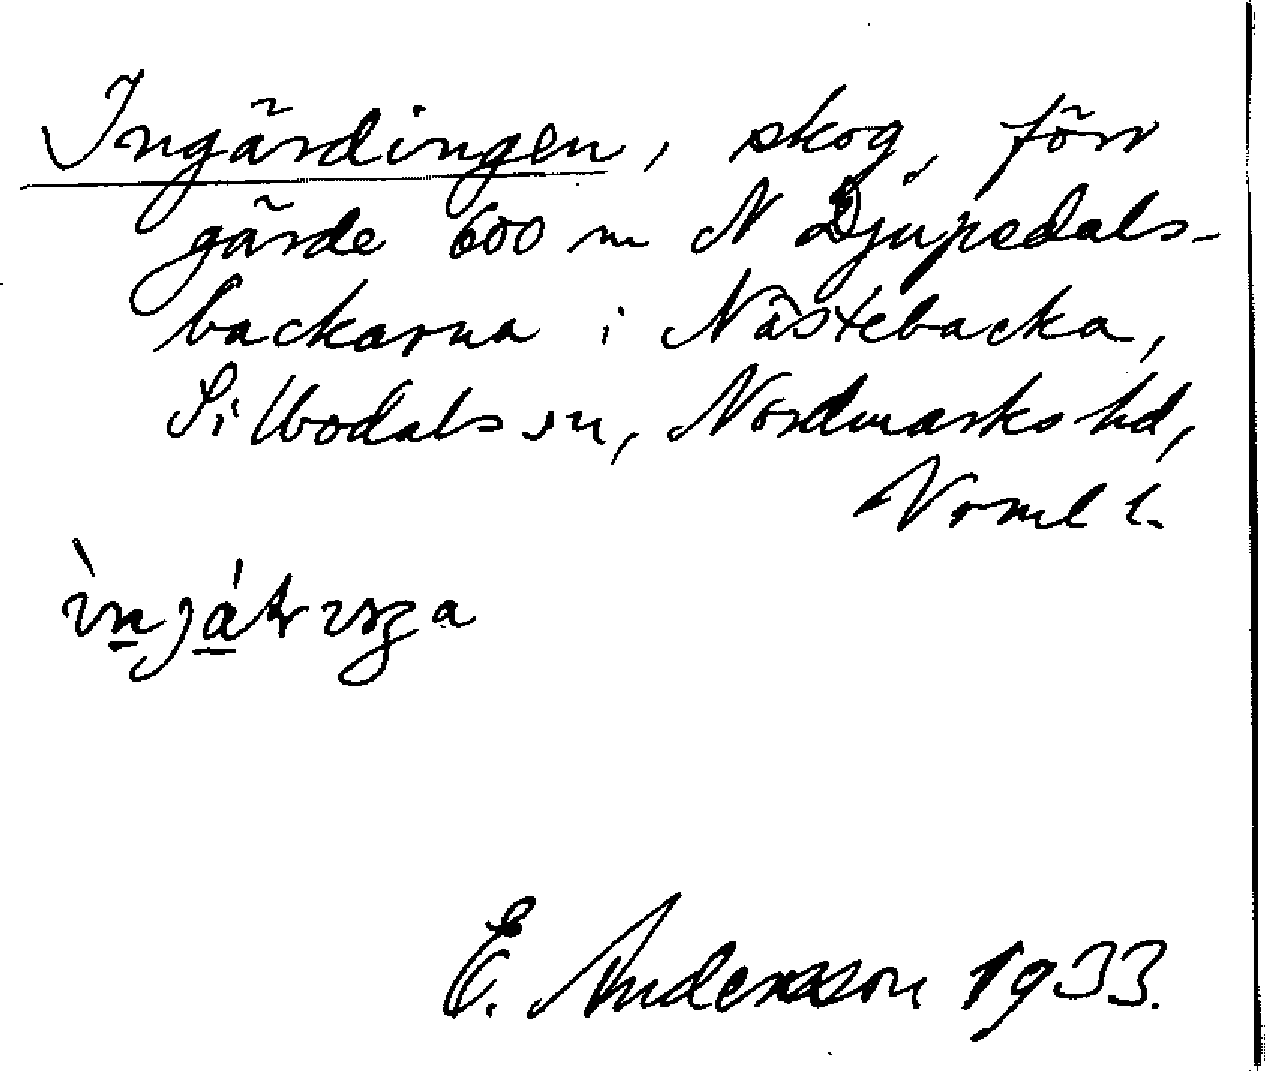 Ingärdingen, skog, förr
gärde 600 m N Djupedals-
backarna i Nästebacka,
Silbodals sn, Nordmarks hd,
Vrml l.
E. Andersson 1933.